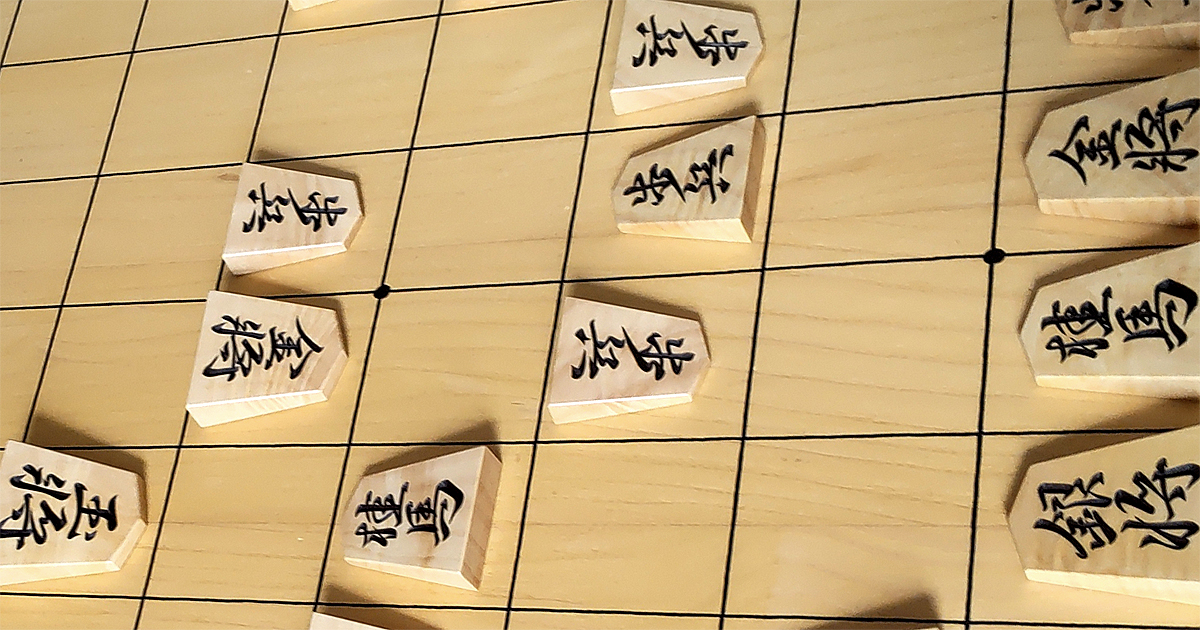 歩兵
歩兵
金将
歩兵
桂馬
金将
歩兵
銀将
桂馬
玉将